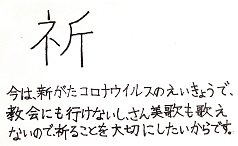 祈
今は、新がたコロナウイルスのえいきょうで、
教会にも行けないし、さん美歌も歌え
ないので、祈ることを大切にしたいからです。